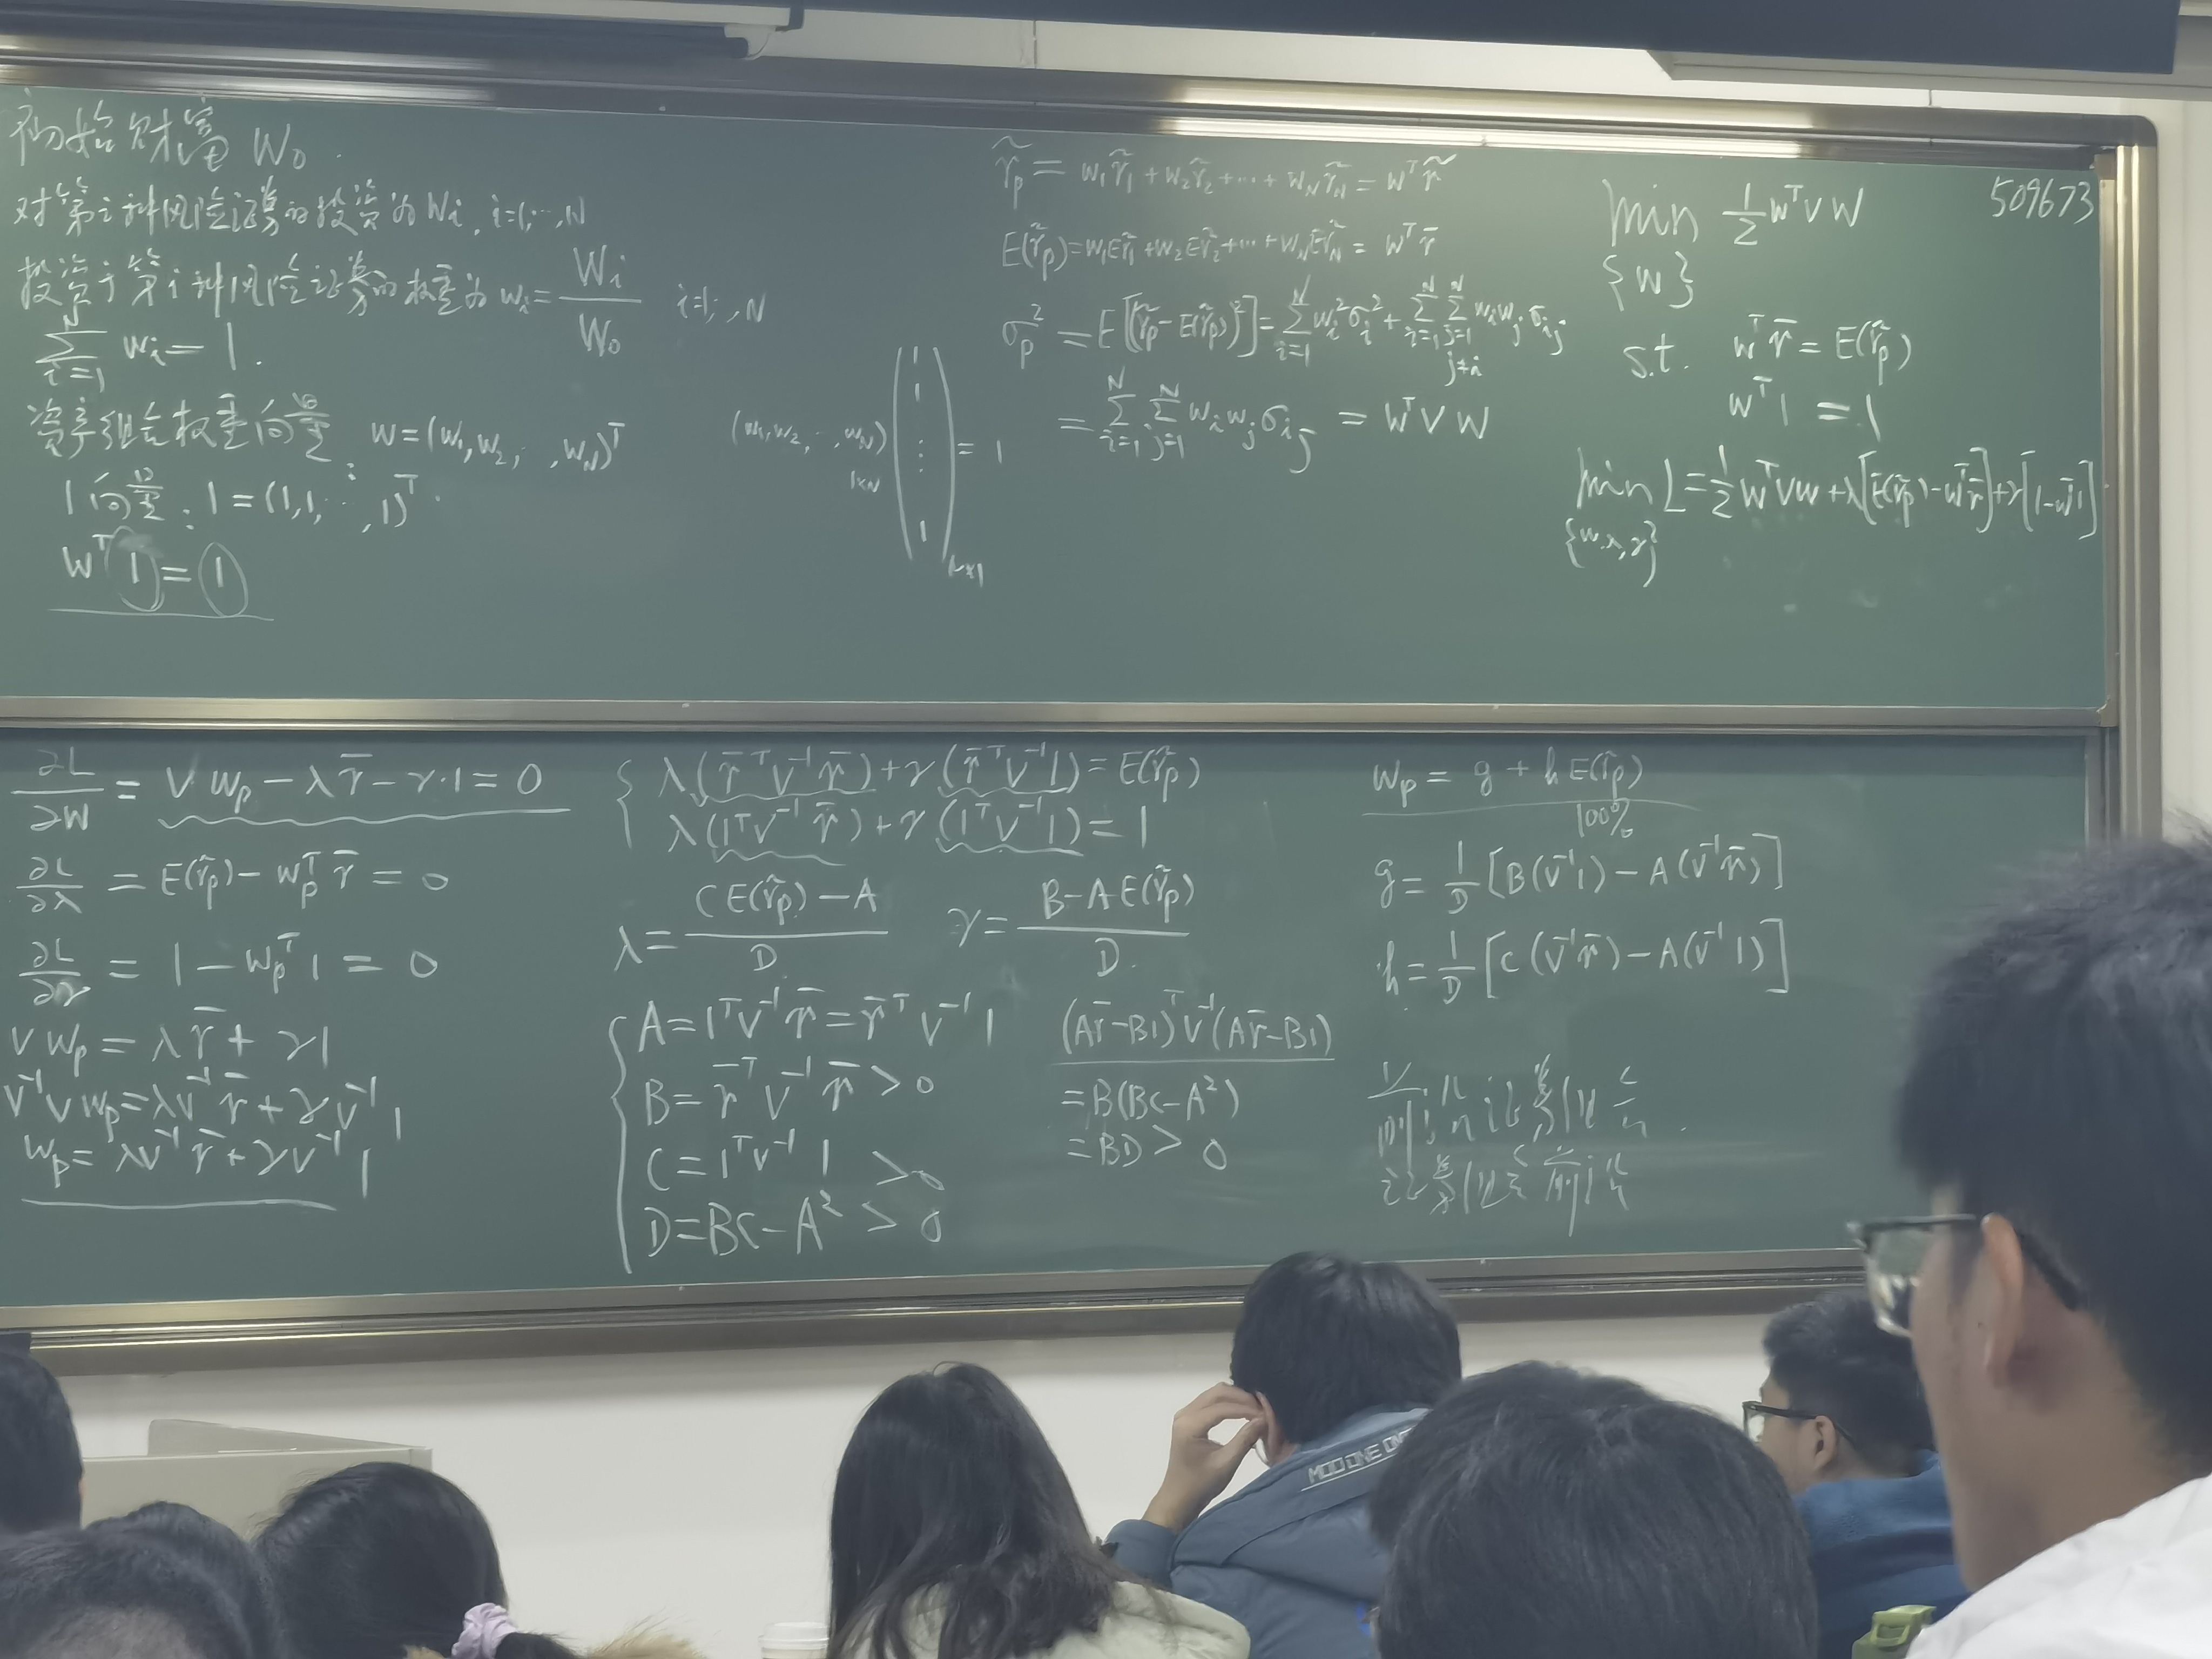 初始财富 W₀.
对第i种风险证券的投资为 Wi, i=1,…,N
投资于第i种风险证券的权重为 wi = Wi/W₀ i=1,…,N
∑_{i=1}^{N} wi = 1.
资产组合权重向量: w=(w₁,w₂,…,w_N)ᵀ
1向量: 1=(1,1,…,1)ᵀ.
wᵀ1=1
(w₁,w₂,…,w_N)_{1×N} (1 1 ⋮ 1)_{N×1} = 1
r̃p = w₁r̃₁+w₂r̃₂+…+w_N r̃_N = wᵀr̃
E(r̃p)=w₁Er̃₁+w₂Er̃₂+…+w_N Er̃_N = wᵀr̄
σp² = E[(r̃p−E(r̃p))²] = ∑_{i=1}^{N} wi²σi² + ∑_{i=1}^{N} ∑_{j=1, j≠i}^{N} wi wj σij
= ∑_{i=1}^{N} ∑_{j=1}^{N} wi wj σij = wᵀVw
509673
min ½wᵀVw
{w}
s.t. wᵀr̄ = E(r̃p)
wᵀ1 = 1
min L=½wᵀVw+λ[E(r̃p)−wᵀr̄]+γ[1−wᵀ1]
{w,λ,γ}
∂L/∂w = V·wp−λr̄−γ·1=0
∂L/∂λ = E(r̃p)−wpᵀr̄ = 0
∂L/∂γ = 1−wpᵀ1 = 0
Vwp = λr̄+γ1
V⁻¹Vwp=λV⁻¹r̄+γV⁻¹1
wp=λV⁻¹r̄+γV⁻¹1
λ(r̄ᵀV⁻¹r̄)+γ(r̄ᵀV⁻¹1)=E(r̃p)
λ(1ᵀV⁻¹r̄)+γ(1ᵀV⁻¹1)=1
λ=(CE(r̃p)−A)/D γ=(B−AE(r̃p))/D.
A=1ᵀV⁻¹r̄=r̄ᵀV⁻¹1
B=r̄ᵀV⁻¹r̄>0
C=1ᵀV⁻¹1>0
D=BC−A²>0
(Ar̄−B1)ᵀV⁻¹(Ar̄−B1)
=B(BC−A²)
=BD>0
wp = g+hE(r̃p)
100%
g=1/D[B(V⁻¹1)−A(V⁻¹r̄)]
h=1/D[C(V⁻¹r̄)−A(V⁻¹1)]
证券组合
证券组合前沿